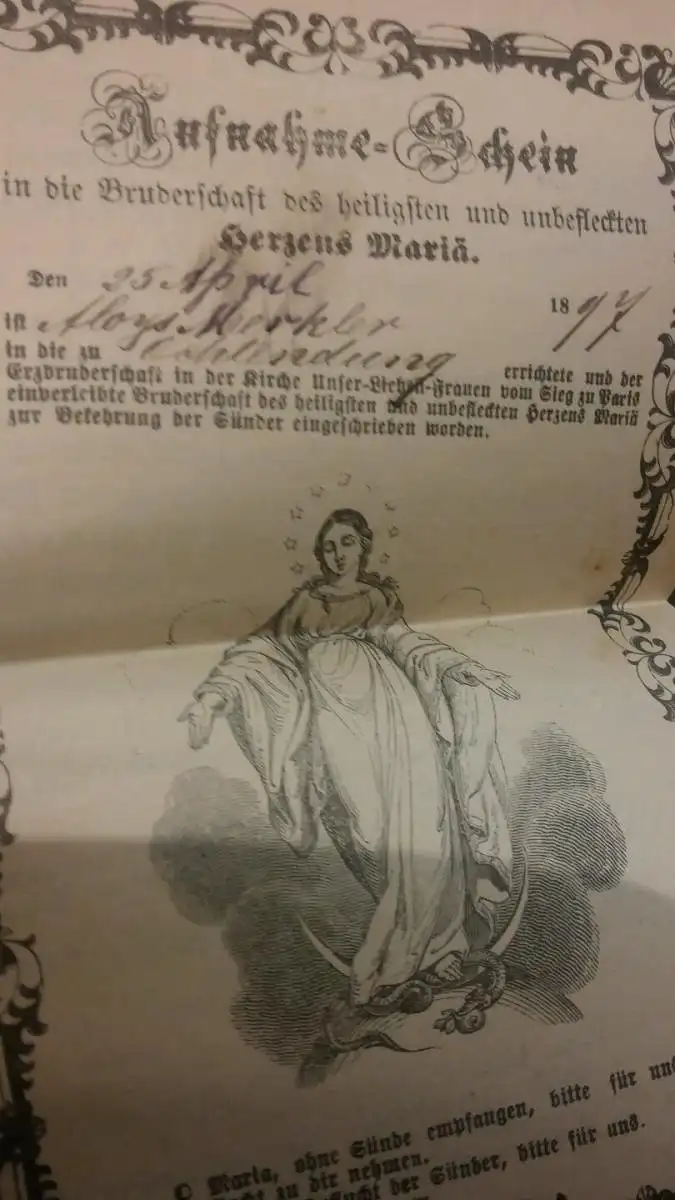 Aufnahme-Schein
in die Bruderschaft des heiligsten und unbefleckten
Herzens Mariä.
Den 25 April 1897
ist Aloys Merkler
in die zu errichtete und der
Erzbruderschaft in der Kirche Unser-Lieben-Frauen vom Sieg zu Paris
einverleibte Bruderschaft des heiligsten und unbefleckten Herzens Mariä
zur Bekehrung der Sünder eingeschrieben worden.
O Maria, ohne Sünde empfangen, bitte für uns
zu dir nehmen.
der Sünder, bitte für uns.